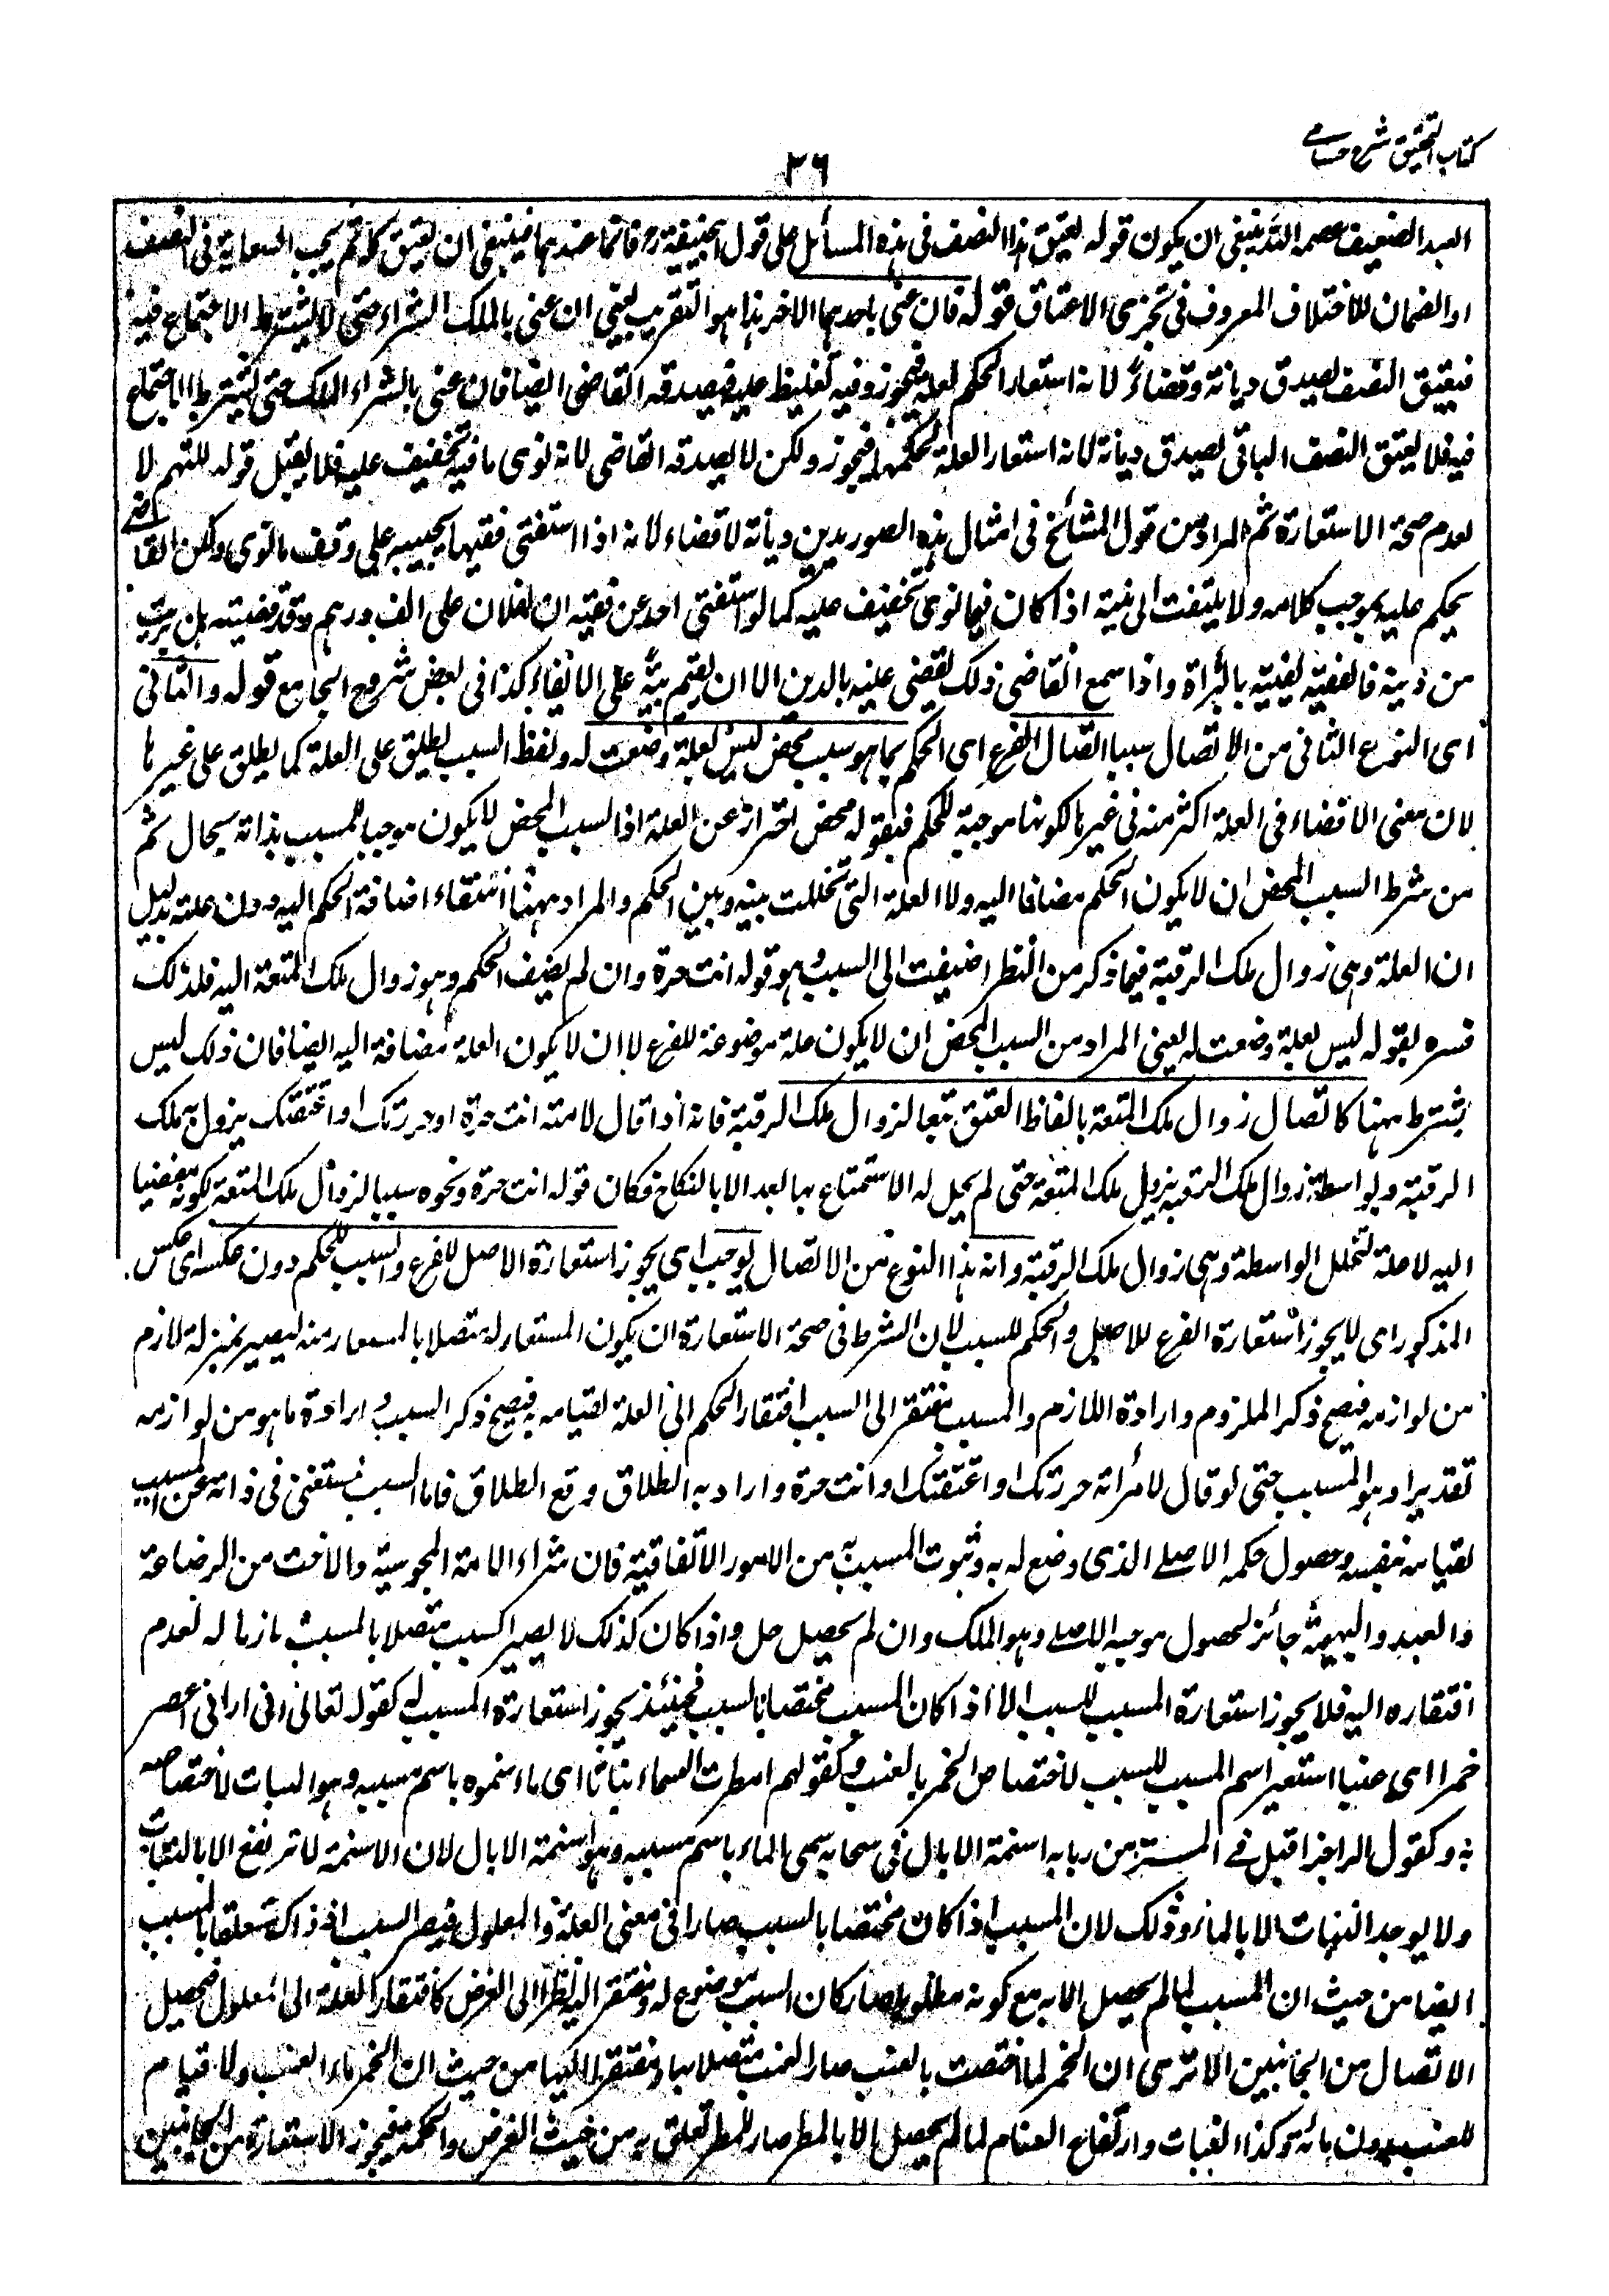 كتاب التحقيق شرح حسامي
٣٦
العبد الضعيف عصمه الله ينبغي ان يكون قوله يعتق هذا النصف في هذه المسائل على قول ابيحنيفة رح فاما عندهما فينبغي ان يعتق كله ثم يجب السعاية في النصف
او الضمان للاختلاف المعروف في تجزي الاعتاق قوله فان عني باحدهما الاخر هذا هو التقريب يعني ان عني بالملك الشراء حتى لا يشترط الاجتماع فيه
فيعتق النصف يصدق ديانة وقضاءً لانه استعار الحكم لعلته فيجوز وفيه تغليظ عليه فيصدقه القاضي ايضا فان عني بالشراء الملك حتى يشترط الاجتماع
فيه فلا يعتق النصف الباقي يصدق ديانة لانه استعار العلة لحكمها فيجوز ولكن لا يصدقه القاضي لانه نوى ما فيه تخفيف عليه فلا يقبل قوله للتهم لا
لعدم صحة الاستعارة ثم المراد من قول المشائخ في امثال هذه الصور يدين ديانة لا قضاء لانه اذا استفتى فقيها يجيبه على وفق ما نوى ولكن القاضي
يحكم عليه بموجب كلامه ولا يلتفت الى نيته اذا كان فيما نوى تخفيف عليه كما لو استفتى احد عن فقيه ان لفلان على الف درهم وقد قضيته هل برئت
من دينه فالفقيه يفتيه بالبراة واذا سمع القاضي ذلك يقضي عليه بالدين الا ان يقيم بينة على الايفاء كذا في بعض شروح الجامع قوله والثاني
اى النوع الثاني من الاتصال سببا اتصال الفرع اى الحكم بما هو سبب محض ليس بعلة وضعت له ولفظ السبب يطلق على العلة كما يطلق على غيرها
لان معنى الافضاء في العلة اكثر منه في غيرها لكونها موجبة للحكم فبقوله محض احتراز عن العلة اذ السبب المحض لا يكون موجبا للمسبب بذاته بحال ثم
من شرط السبب المحض ان لا يكون الحكم مضافا اليه ولا العلة التي تخللت بينه وبين الحكم والمراد ههنا انتفاء اضافة الحكم اليه دون علته بدليل
ان العلة وهي زوال ملك الرقبة فيما ذكر من النظر اضيفت الى السبب وهو قوله انت حرة وان لم يضف الحكم وهو زوال ملك المتعة اليه فلذلك
فسره بقوله ليس بعلة وضعت له يعني المراد من السبب المحض ان لا يكون علة موضوعة للفرع لا ان لا يكون العلة مضافة اليه ايضا فان ذلك ليس
بشرط ههنا كاتصال زوال ملك المتعة بالفاظ العتق تبعا لزوال ملك الرقبة فانه اذا قال لامته انت حرة او حررتك او اعتقتك يزول به ملك
الرقبة وبواسطة زوال ملك الرقبة يزول ملك المتعة حتى لم يحل له الاستمتاع بها بعد الا بالنكاح فكان قوله انت حرة ونحوه سببا لزوال ملك المتعة لكونه مفضيا
اليه لا علة لتخلل الواسطة وهي زوال ملك الرقبة وانه هذا النوع من الاتصال يوجب اى يجوز استعارة الاصل للفرع والسبب للحكم دون عكسه اى عكس
المذكور اى لا يجوز استعارة الفرع للاصل والحكم للسبب لان الشرط في صحة الاستعارة ان يكون المستعار له متصلا بالمستعار منه ليصير بمنزلة لازم
من لوازمه فيصح ذكر الملزوم وارادة اللازم والمسبب مفتقر الى السبب افتقار الحكم الى العلة لقيامه به فيصح ذكر السبب وارادة ما هو من لوازمه
تقديرا وهو المسبب حتى لو قال لامرأته حررتك او اعتقتك او انت حرة واراد به الطلاق وقع الطلاق فاما السبب فمستغن في ذاته عن المسبب
لقيامه بنفسه وحصول حكمه الاصلي الذي وضع له به وثبوت المسبب به من الامور الاتفاقية فان شراء الامة المجوسية والاخت من الرضاعة
والعبد والبهيمة جائز لحصول موجبه الاصلي وهو الملك وان لم يحصل حل واذا كان كذلك لا يصير السبب متصلا بالمسبب لازما له لعدم
افتقاره اليه فلا يجوز استعارة المسبب للسبب الا اذا كان المسبب مختصا بالسبب فحينئذ يجوز استعارة المسبب له كقوله تعالى انى ارانى اعصر
خمرا اى عنبا استعير اسم المسبب للسبب لاختصاص الخمر بالعنب وكقولهم امطرت السماء نباتا اى ماء سموه باسم مسببه وهو النبات لاختصاصه
به وكقول الراجز اقبل في المستن من ربابه اسنمة الابال في سحابه سمى الماء باسم مسببه وهو اسنمة الابال لان الاسنمة لا ترتفع الا بالنبات
ولا يوجد النبات الا بالماء وذلك لان المسبب اذا كان مختصا بالسبب صارا في معنى العلة والمعلول فيصير السبب اذ ذاك متعلقا بالمسبب
ايضا من حيث ان المسبب لما لم يحصل الا به مع كونه مطلوبا صار كان السبب موضوع له ومفتقر اليه نظرا الى الغرض كافتقار العلة الى المعلول فيحصل
الاتصال من الجانبين الا ترى ان الخمر لما اختصت بالعنب صار العنب متصلا بها ومفتقرا اليها من حيث ان الخمر ماء العنب ولا قيام
للعنب بدون مائه وكذا النبات وارتفاع السنام لما لم يحصل الا بالمطر صار للمطر تعلق به من حيث الغرض والحكمة فيجوز الاستعارة من الجانبين